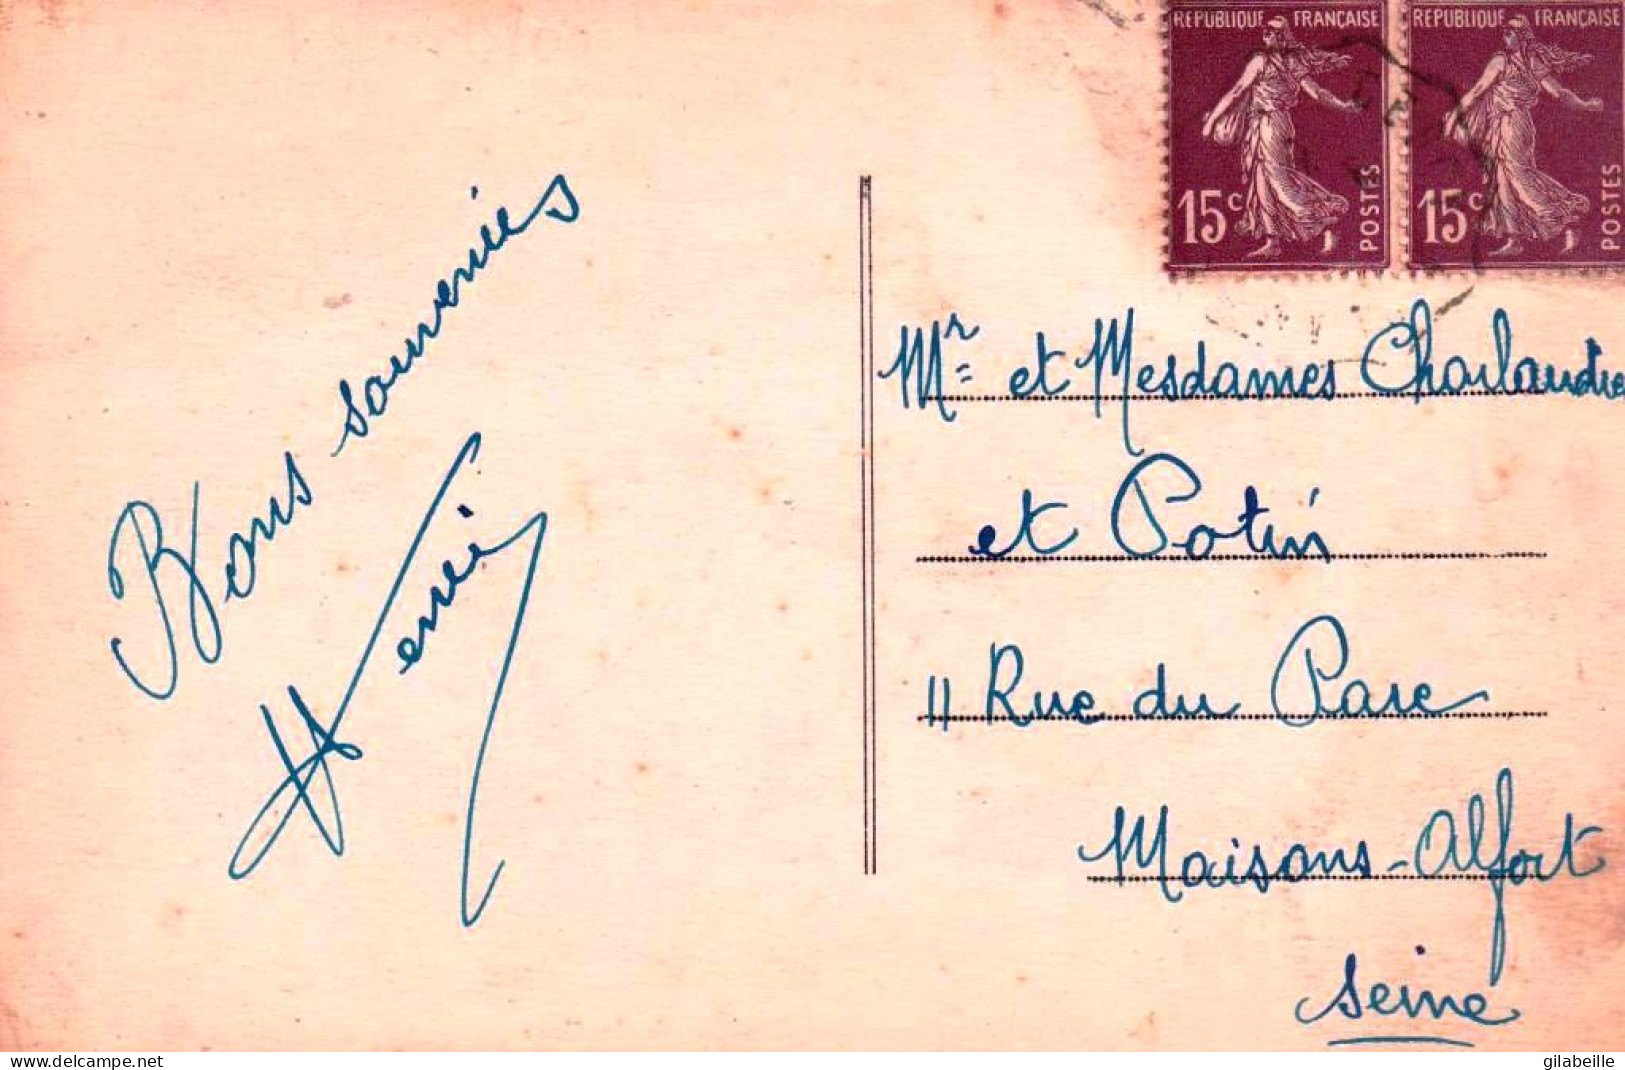 RÉPUBLIQUE FRANÇAISE
15c POSTES
RÉPUBLIQUE FRANÇAISE
15c POSTES
Bons souvenirs
Henri
Mr et Mesdames Charlandre
et Potin
11 Rue du Parc
Maisons-Alfort
Seine
www.delcampe.net
gilabeille